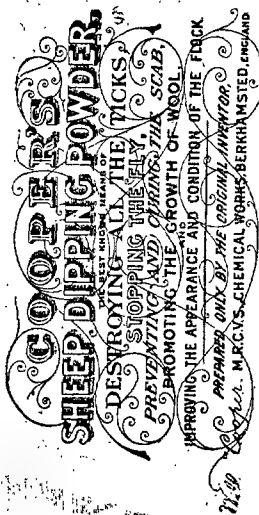 COOPER'S
SHEEP DIPPING POWDER,
THE BEST KNOWN MEANS OF
DESTROYING ALL THE TICKS,
STOPPING THE FLY,
PREVENTING AND CURING THE SCAB,
PROMOTING THE GROWTH OF WOOL,
AND
IMPROVING THE APPEARANCE AND CONDITION OF THE FLOCK.
PREPARED ONLY BY THE ORIGINAL INVENTOR,
Wm Cooper. M.R.C.V.S., CHEMICAL WORKS, BERKHAMSTED, ENGLAND